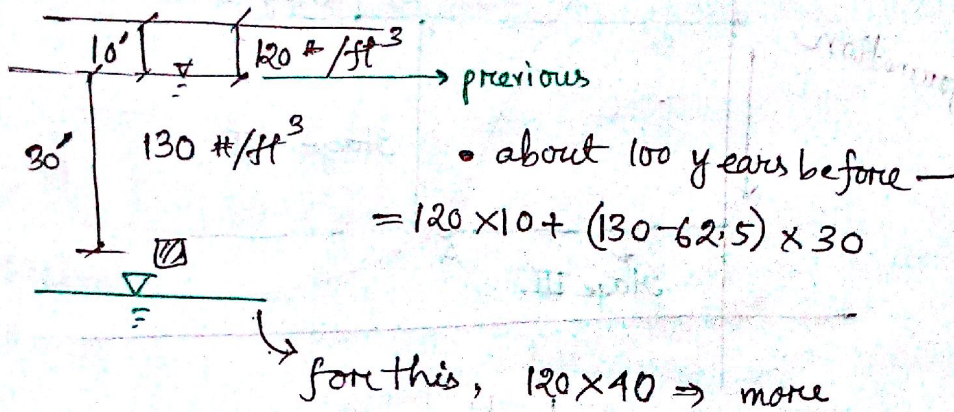 10' 120 #/ft³
→ previous
30' 130 #/ft³
• about 100 years before —
= 120 × 10 + (130-62.5) × 30
fore this, 120 × 40 ⇒ more